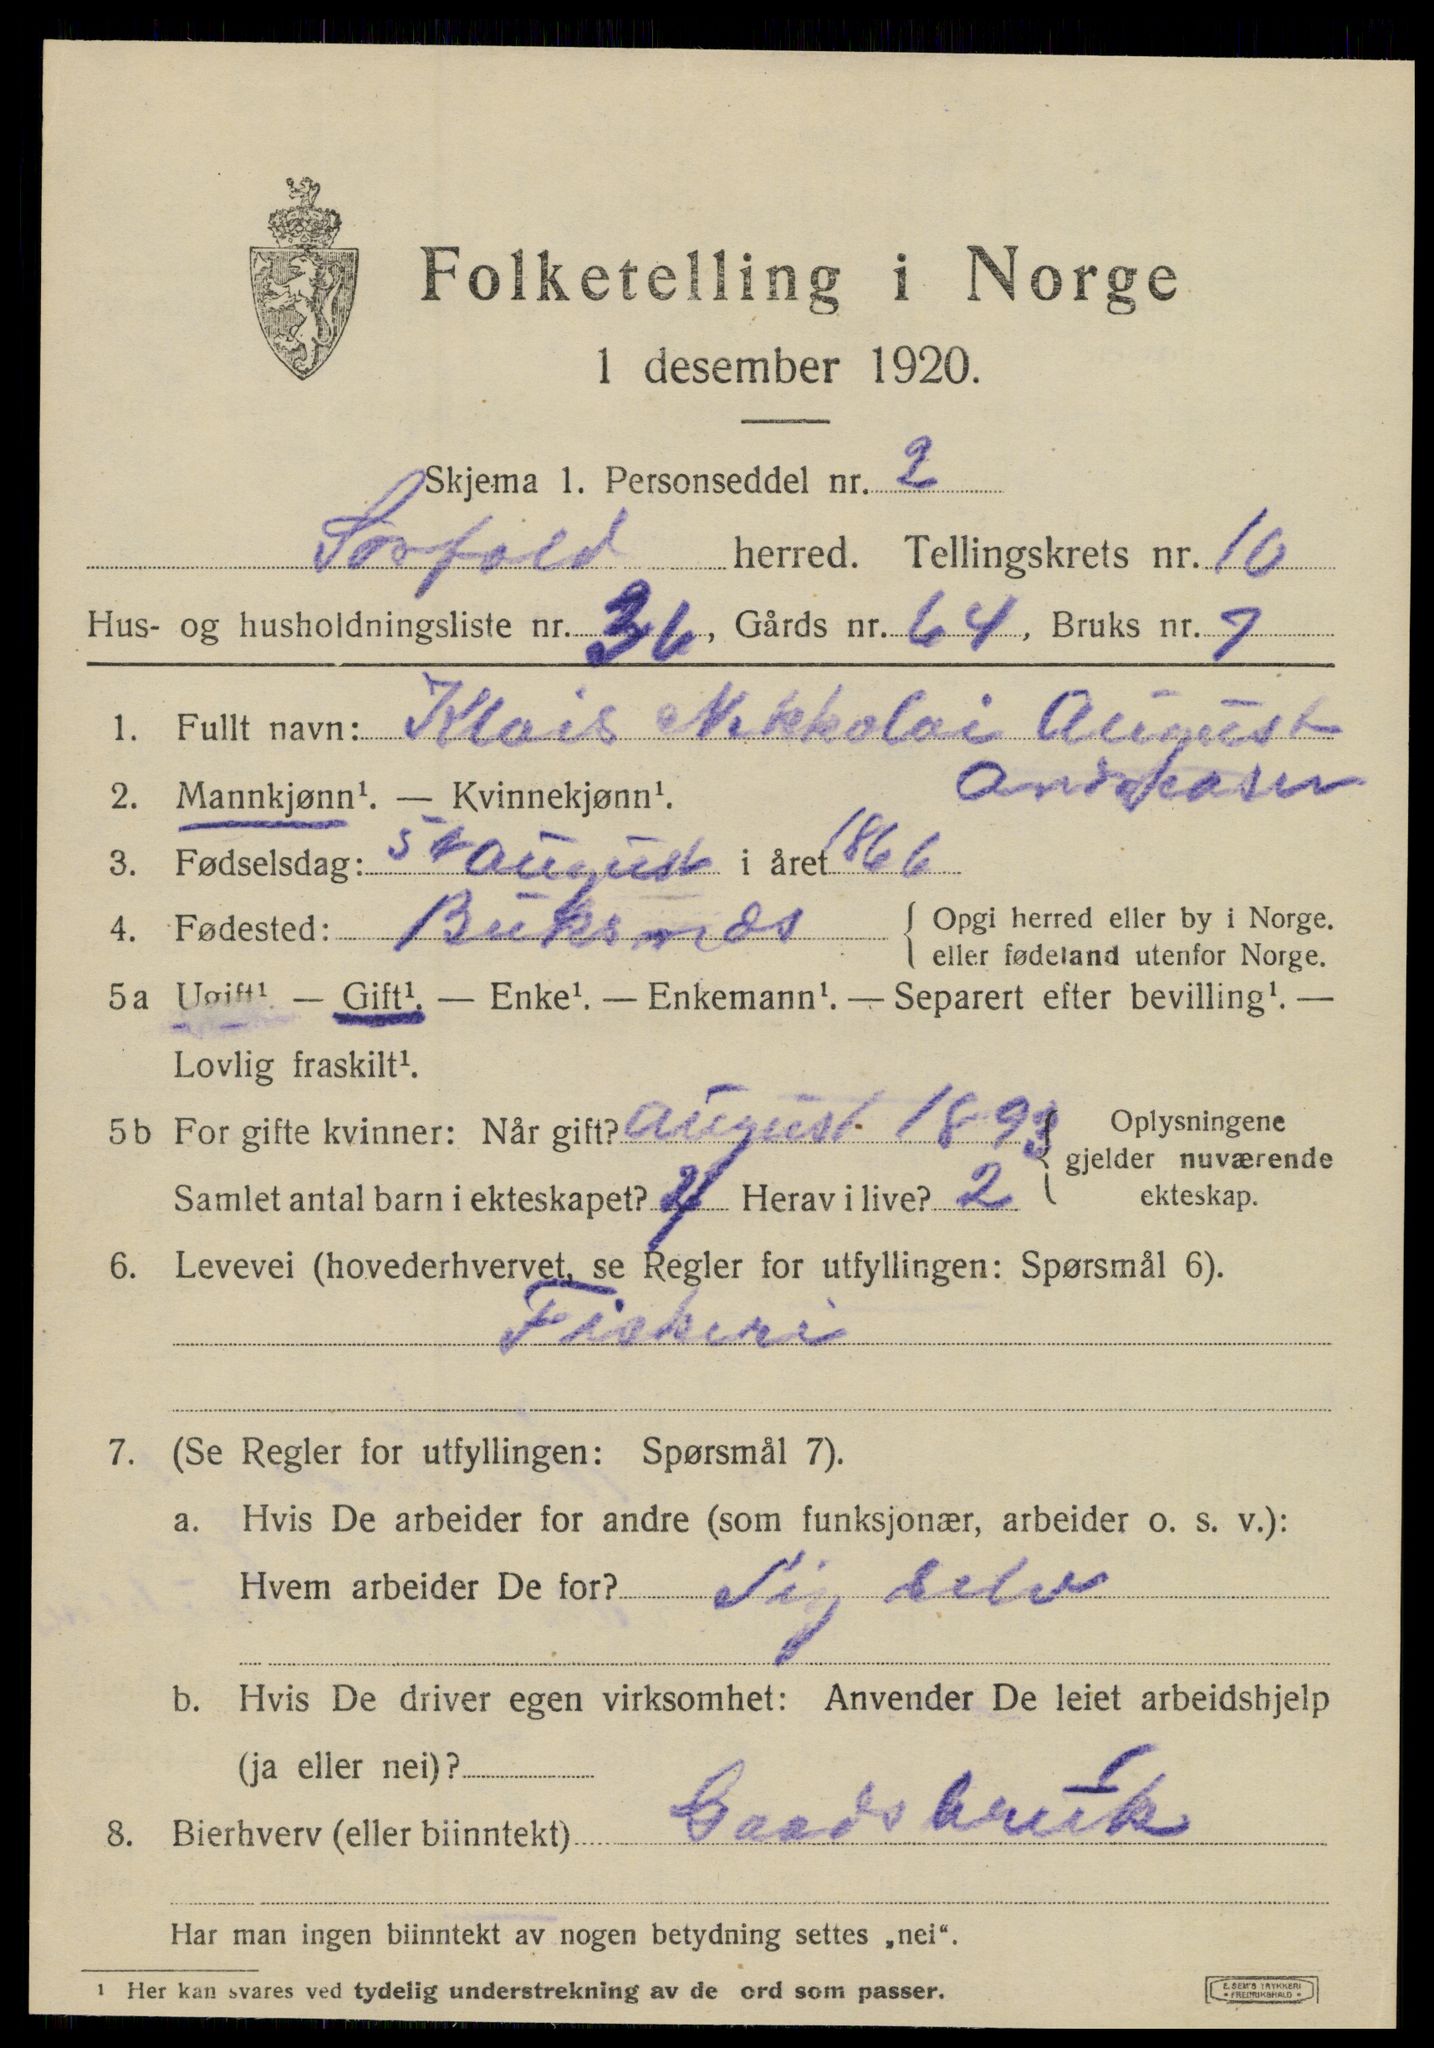 Folketelling i Norge
1 desember 1920.
Skjema 1. Personseddel nr. 2
Sørfold herred. Tellingskrets nr. 10
Hus- og husholdningsliste nr. 36, Gårds nr. 64, Bruks nr. 7
1. Fullt navn: Klais Nikkolai August
Andreasen
2. Mannkjønn¹. — Kvinnekjønn¹.
3. Fødselsdag: 5te August i året 1866
4. Fødested: Buksnæs { Opgi herred eller by i Norge.
eller fødeland utenfor Norge.
5a Ugift¹. — Gift¹. — Enke¹. — Enkemann¹. — Separert efter bevilling¹. —
Lovlig fraskilt¹.
5b For gifte kvinner: Når gift? August 1893 { Oplysningene
gjelder nuværende
Samlet antal barn i ekteskapet? 4 Herav i live? 2 ekteskap.
6. Levevei (hovederhvervet, se Regler for utfyllingen: Spørsmål 6).
Fiskeri
7. (Se Regler for utfyllingen: Spørsmål 7).
a. Hvis De arbeider for andre (som funksjonær, arbeider o. s. v.):
Hvem arbeider De for? Sig selv
b. Hvis De driver egen virksomhet: Anvender De leiet arbeidshjelp
(ja eller nei)?
8. Bierhverv (eller biinntekt) Gaadsbruk
Har man ingen biinntekt av nogen betydning settes „nei“.
¹ Her kan svares ved tydelig understrekning av de ord som passer.
E. SEM'S TRYKKERI
FREDRIKSHALD